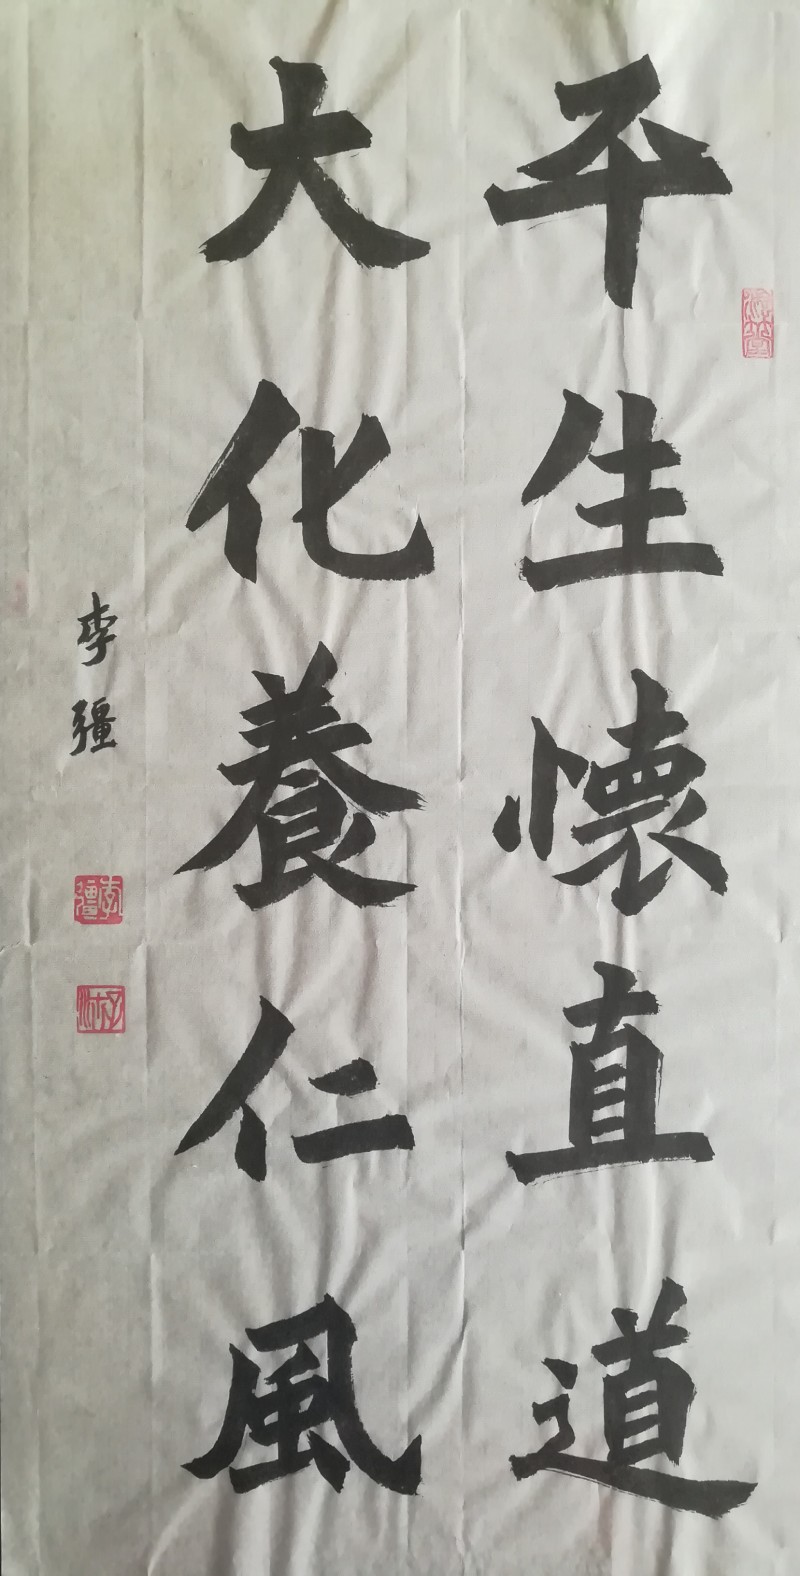 平生懷直道
大化養仁風
李彊
李彊